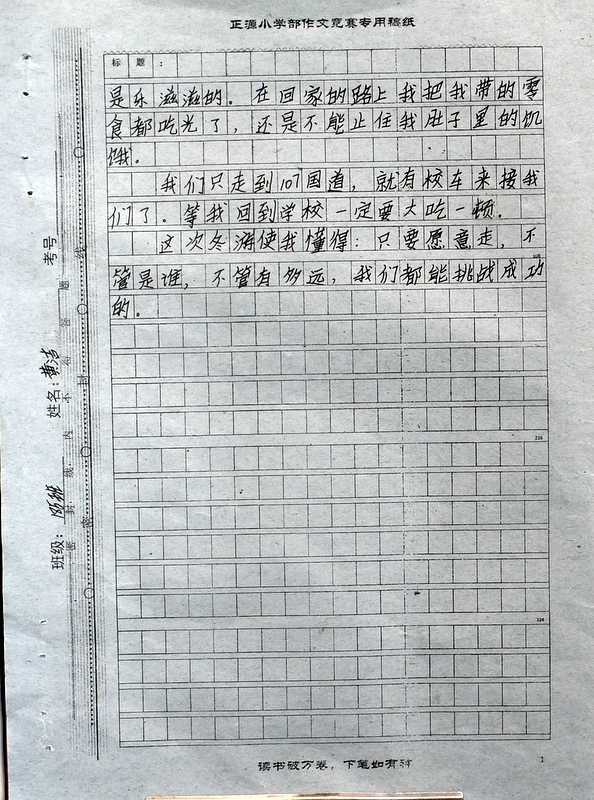 正源小学部作文竞赛专用稿纸
标题：
是乐滋滋的。在回家的路上我把我带的零
食都吃光了，还是不能止住我肚子里的饥
饿。
我们只走到107国道，就有校车来接我
们了。等我回到学校一定要大吃一顿。
这次冬游使我懂得：只要愿意走，不
管是谁，不管有多远，我们都能挑战成功
的。
108
216
324
读书破万卷，下笔如有神
1
考号
姓名：黄洁
班级：
密封线内不要答题